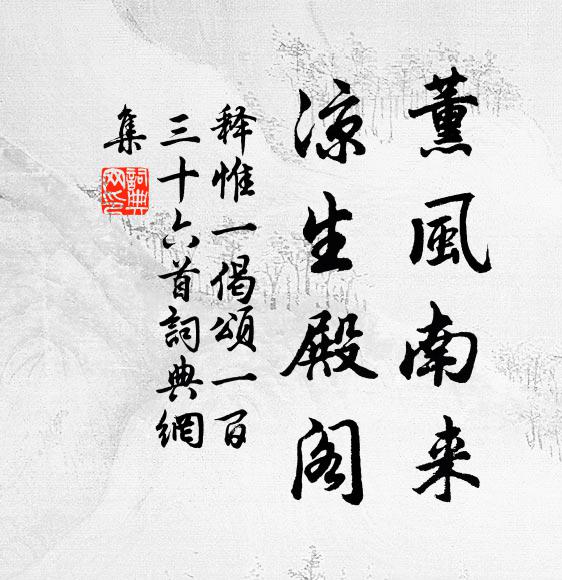 薰風南来
凉生殿阁
释惟一偈頌一百
三十六首詞典網
集
詞典網印